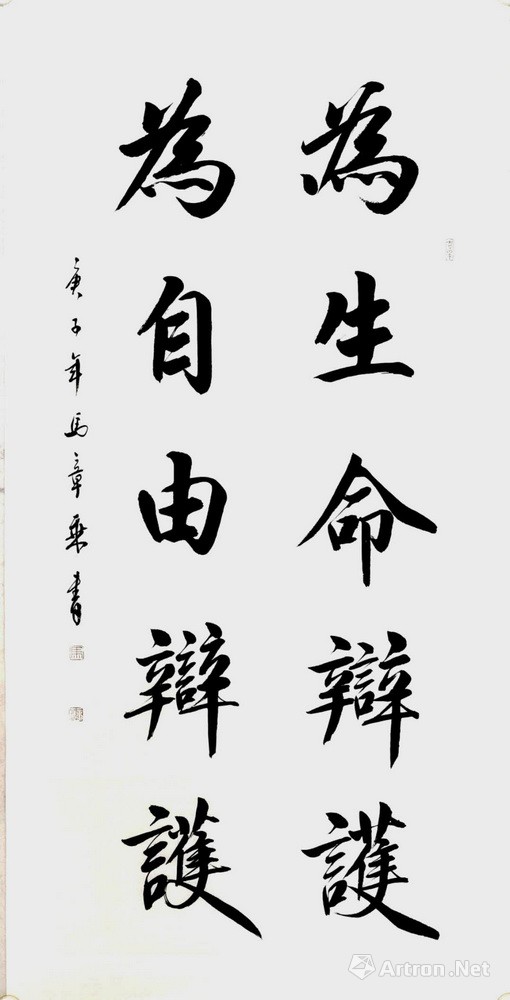 為生命辯護
為自由辯護
庚子年馬章乘書
Artron.Net